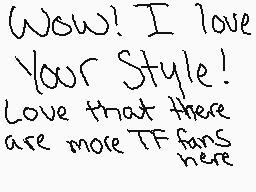 Wow! I love
Your Style!
Love that there
are more TF fans
here